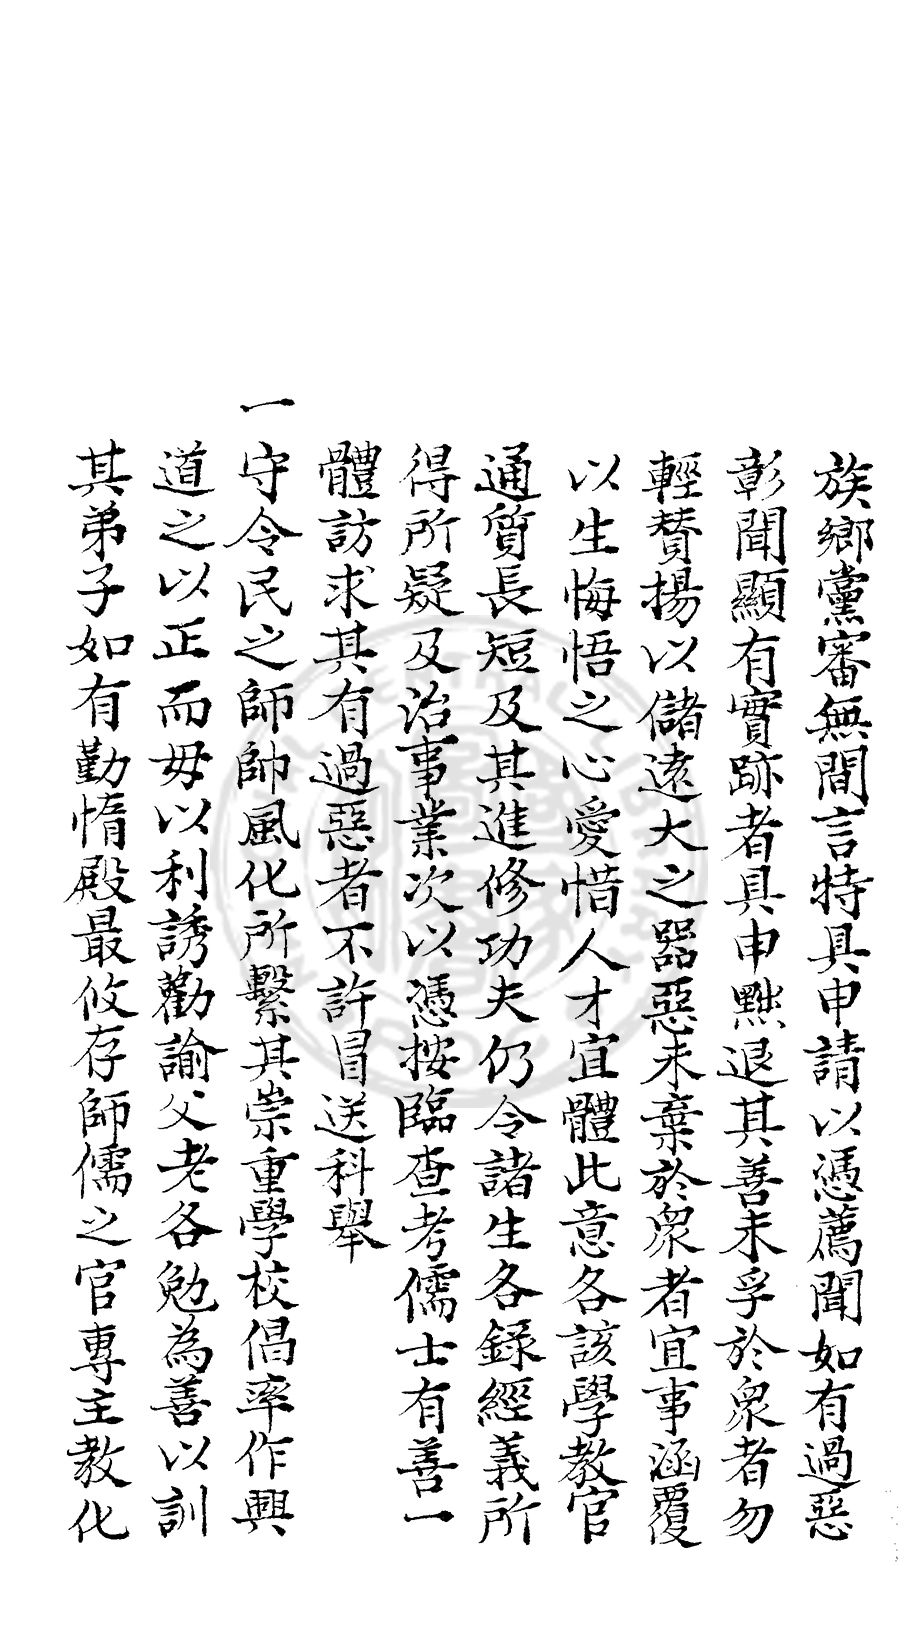 族鄉黨審無間言特具申請以憑薦聞如有過惡
彰聞顯有實跡者具申黜退其善未孚於衆者勿
輕賛揚以儲遠大之器惡未棄於衆者宜事涵覆
以生悔悟之心愛惜人才宜體此意各該學教官
通質長短及其進修功夫仍令諸生各錄經義所
得所疑及治事業次以憑按臨查考儒士有善一
體訪求其有過惡者不許冒送科舉
一守令民之師帥風化所繫其崇重學校倡率作興
道之以正而毋以利誘勸諭父老各勉為善以訓
其弟子如有勤惰殿最攸存師儒之官專主教化